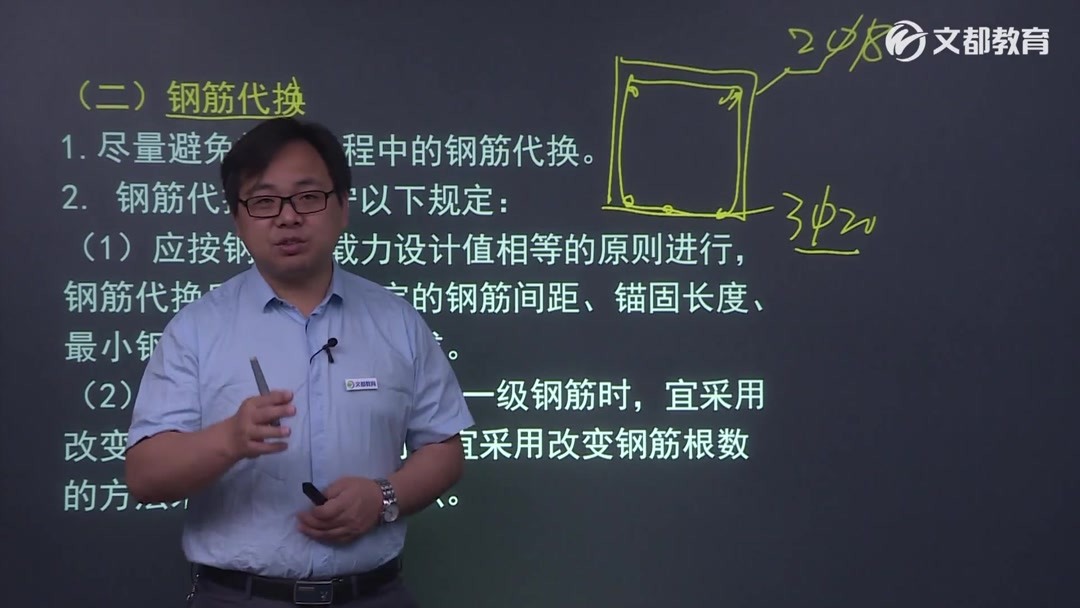 文都教育
2Φ18
（二）钢筋代换
1.尽量避免 程中的钢筋代换。
2. 钢筋代 以下规定：
3Φ20
（1）应按钢 载力设计值相等的原则进行，
钢筋代换 的钢筋间距、锚固长度、
最小钢 。
（2） 一级钢筋时，宜采用
改变 宜采用改变钢筋根数
的方法 。
文都教育